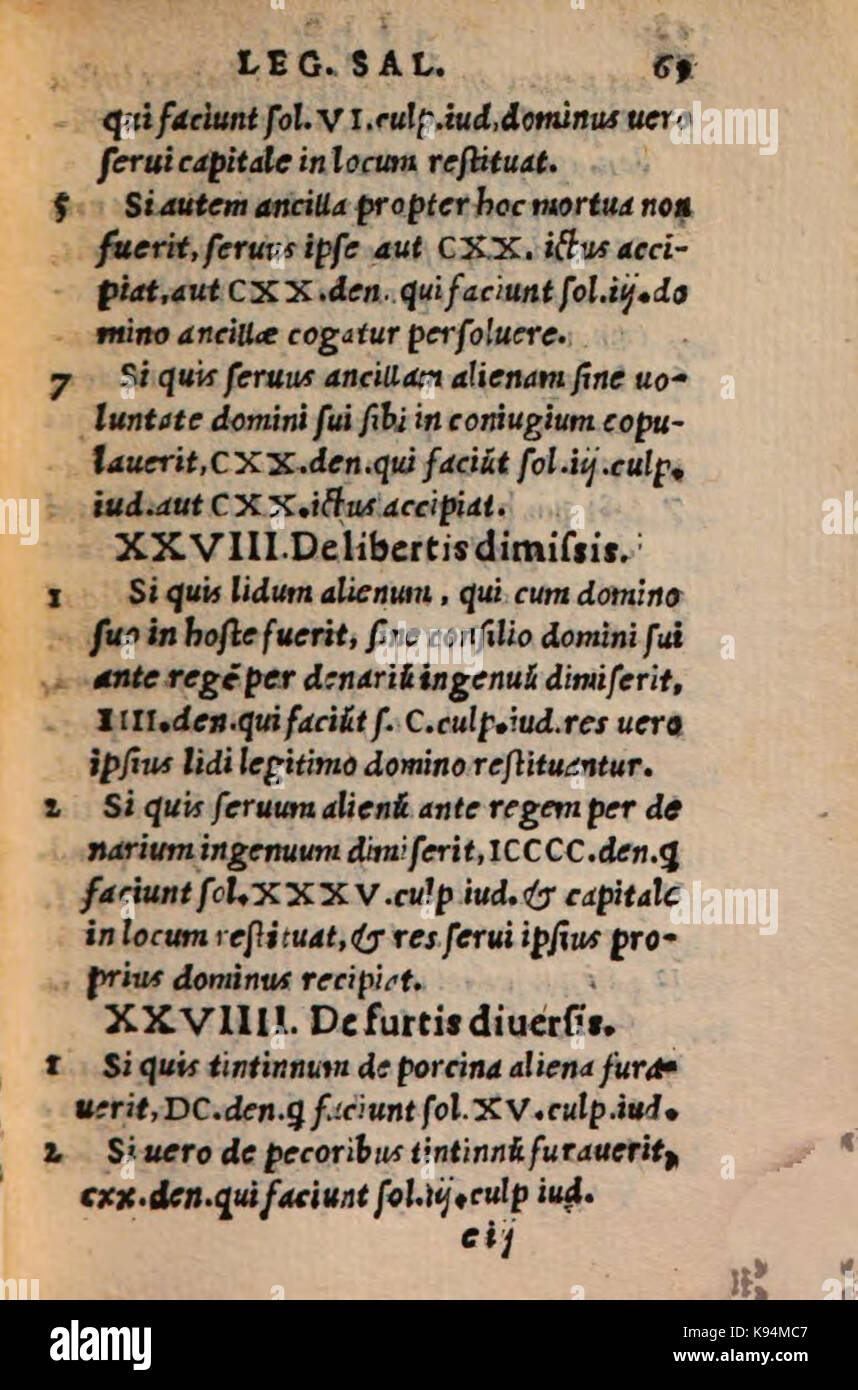 LEG. SAL. 69
qui faciunt ſol. VI. culp. iud, dominus uero
ſerui capitale in locum reſtituat.
5 Si autem ancilla propter hoc mortua non
fuerit, ſeruus ipſe aut CXX. ictus acci-
piat, aut CXX. den. qui faciunt ſol. iij. do
mino ancillæ cogatur perſoluere.
7 Si quis ſeruus ancillam alienam ſine uo-
luntate domini ſui ſibi in coniugium copu-
lauerit, CXX. den. qui faciũt ſol. iij. culp.
iud. aut CXX. ictus accipiat.
XXVIII. De libertis dimiſsis.
1 Si quis lidum alienum, qui cum domino
ſuo in hoſte fuerit, ſine conſilio domini ſui
ante regẽ per denariũ ingenuũ dimiſerit,
IIII. den. qui faciũt ſ. C. culp. iud. res uero
ipſius lidi legitimo domino reſtituantur.
2 Si quis ſeruum alienũ ante regem per de
narium ingenuum dimiſerit, ICCCC. den. q
faciunt ſol. XXXV. culp iud. & capitale
in locum reſtituat, & res ſerui ipſius pro-
prius dominus recipiet.
XXVIIII. De furtis diuerſis.
1 Si quis tintinnum de porcina aliena fura-
uerit, DC. den. q faciunt ſol. XV. culp. iud.
2 Si uero de pecoribus tintinnũ furauerit,
cxx. den. qui faciunt ſol. iij. culp iud.
e iij
alamy
Image ID: K94MC7
www.alamy.com